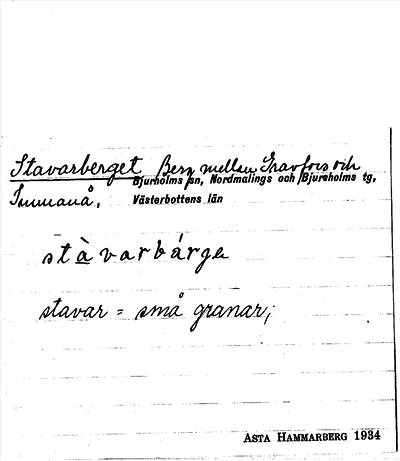 Stavarberget Berg mellan Gravfors och
Bjurholms sn, Nordmalings och Bjursholms tg,
Immanå,
Västerbottens län
stàvarbárge
stavar = små granar;
ASTA HAMMARBERG 1934